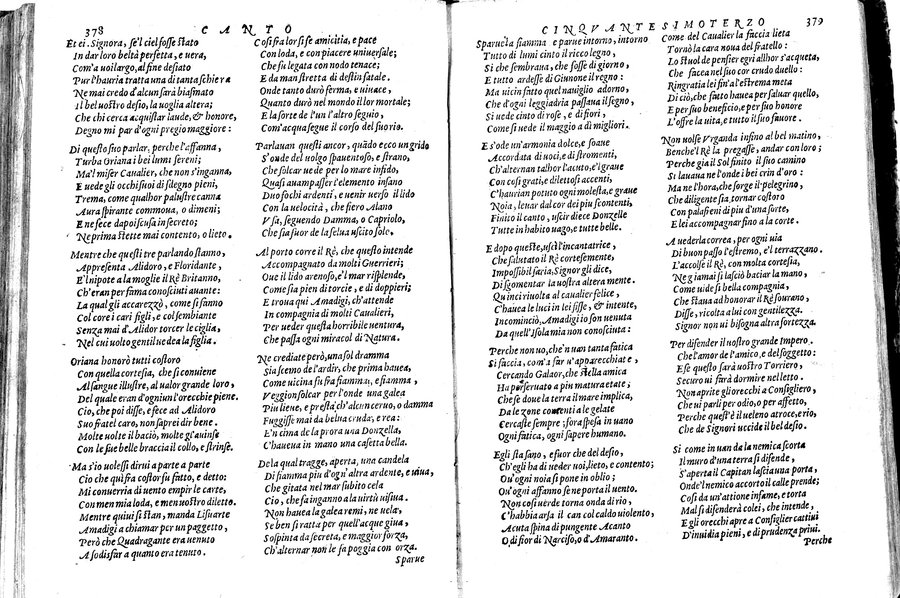 378 CANTO
Et ei. Signora, se'l ciel fosse stato
In dar loro beltà perfetta, e vera,
Com'a voi largo, al fine desiato
Pur l'hauria tratta una di tanta schiera
Ne mai credo d'alcun sarà biasmato
Il bel uostro desio, la uoglia altera;
Che chi cerca acquistar laude, & honore,
Degno mi par d'ogni pregio maggiore:
Di questo suo parlar, perche l'affanna,
Turba Oriana i bei lumi sereni;
Ma'l miser Caualier, che non s'inganna,
E uede gli occhi suoi di sdegno pieni,
Trema, come qualhor palustre canna
Aura spirante commoua, o dimeni;
E ne fece dapoi scusa in secreto;
Ne prima stette mai contento, o lieto.
Mentre che questi tre parlando stanno,
Appresenta Alidoro, e Floridante,
E'l nipote a la moglie il Rè Britanno,
Ch'eran per fama conosciuti auante:
La qual gli accarezzò, come si fanno
Col core i cari figli, e col sembiante
Senza mai d'Alidor torcer le ciglia,
Nel cui uolto gentil uedea la figlia.
Oriana honorò tutti costoro
Con quella cortesia, che si conuiene
Al sangue illustre, al ualor grande loro,
Del quale eran d'ogniun l'orecchie piene.
Ciò, che poi disse, e fece ad Alidoro
Suo fratel caro, non saprei dir bene.
Molte uolte il baciò, molte gl'auinse
Con le sue belle braccia il collo, e strinse.
Ma s'io uolessi dirui a parte a parte
Ciò che quì fra costor fu fatto, e detto:
Mi conuerria di uento empir le carte,
Con men mia loda, e men uostro diletto.
Mentre quiui si stan, manda Lisuarte
Amadigi a chiamar per un paggetto,
Però che Quadragante era uenuto
A so disfar a quanto era tenuto.
Così fra lor si fe amicitia, e pace
Con loda, e con piacere uniuersale;
Che fu legata con nodo tenace;
E da man stretta di destin fatale.
Onde tanto durò ferma, e uiuace,
Quanto durò nel mondo il lor mortale;
E la forte de l'un l'altro seguio,
Com'acqua segue il corso del suo rio.
Parlauan questi ancor, quādo ecco un grido
S'onde del uolgo spauentoso, e strano,
Che solcar uede per lo mare infido,
Quasi auampasser l'elemento insano
Duo fochi ardenti, e uenir uerso il lido
Con la uelocità, che fiero Alano
Và, seguendo Damma, o Capriolo,
Che sia fuor de la selua uscito solo.
Al porto corre il Rè, che questo intende
Accompagnato da molti Guerrieri;
Oue il lido arenoso, e'l mar risplende,
Come sia pien di torcie, e di doppieri;
E troua qui Amadigi, ch'attende
In compagnia di molti Caualieri,
Per ueder questa horribile uentura,
Che passa ogni miracol di Natura.
Ne crediate però, una sol dramma
Sia scemo de l'ardir, che prima hauea,
Come uicina fu fra fiamma, e fiamma,
Veggion solcar per l'onde una galea
Più lieue, e presta, ch'alcun ceruo, o damma
Fuggisse mai da belua cruda, e rea:
E'n cima de la prora una Donzella,
C'haueua in mano una cassetta bella.
De la qual tragge, aperta, una candela
Di fiamma più d'ogn'altra ardente, e uiua,
Che gitata nel mar subito cela
Ciò, che fa inganno a la uirtù uisiua.
Non hauea la galea remi, ne uela,
Se ben si ratta per quell'acque giua,
Sospinta da secreta, e maggior forza,
Ch'alternar non le fa poggia con orza.
Sparue
CINQVANTESIMOTERZO 379
Sparue la fiamma e parue intorno, intorno
Tutto di lumi cinto il ricco legno,
Si che sembraua, che fosse di giorno,
E tutto ardesse di Giunone il regno:
Ma uicin fatto quel nauiglio adorno,
Che d'ogni leggiadria passaua il segno,
Si uede cinto di rose, e di fiori,
Come si uede il maggio a dì migliori.
E s'ode un'armonia dolce, e soaue
Accordata di uoci, e di stromenti,
Ch'alternan talhor l'acuto, e'l graue
Con così grati, e dilettosi accenti,
C'haurian potuto ogni molesta, e graue
Noia, leuar dal cor dei più scontenti,
Finito il canto, uscir diece Donzelle
Tutte in habito uago, e tutte belle.
E dopo queste, uscì l'incantatrice,
Che salutato il Rè cortesemente,
Impossibil saria, Signor gli dice,
Di sgomentar la uostra altera mente.
Quinci riuolta al caualier felice,
C'hauea le luci in lei fisse, & intente,
Incominciò, Amadigi io son uenuta
Da quell'Isola mia non conosciuta:
Perche non uo, che'n uan tanta fatica
Si faccia, com'a far u'apparecchiate,
Cercando Galaor, che stella amica
Ha preseruato a più matura etate;
Che se doue la terra il mare implica,
Da le zone cotenti a le gelate
Cercaste sempre; sforaspesa in uano
Ogni fatica, ogni sapere humano.
Egli sta sano, e fuor che del desio,
Ch'egli ha di ueder uoi, lieto, e contento;
Ou'ogni noia si pone in oblio;
Ou'ogni affanno se ne porta il uento.
Non così uerde torna onda di rio,
C'habbia arsa il can col caldo uiolento,
Acuta spina di pungente Acanto
O di fior di Narciso, o d'Amaranto.
Come del Caualier la faccia lieta
Tornò la cara noua del fratello:
Lo stuol de pensier egri allhor s'acqueta,
Che facea nel suo cor crudo duello:
Ringratia lei fin'a l'estrema meta
Di ciò, che fatto hauea per saluar quello,
E per suo beneficio, e per suo honore
L'offre la uita, e tutto il suo fauore.
Non uolse Vrganda infino al bel matino,
Benche'l Rè la pregasse, andar con loro;
Perche gia il Sol finito il suo camino
Si lauaua ne l'onde i bei crin d'oro:
Ma ne l'hora, che sorge il pelegrino,
Che diligente sia, tornar costoro
Con palafreni di piu d'una sorte,
E lei accompagnar fino a la corte.
A uederla correa, per ogni uia
Di buon passo l'estremo, e'l terrazzano.
L'accolse il Rè, con molta cortesia,
Ne giamai si lasciò baciar la mano,
Come uide sì bella compagnia,
Che staua ad honorar il Rè sourano,
Disse, riuolta a lui con gentilezza.
Signor non ui bisogna altra fortezza.
Per difender il uostro grande Impero.
Che l'amor de l'amico, e del soggetto:
E se questo sarà uostro Torriero,
Securo ui farà dormire nel letto.
Non aprite gli orecchi a Consigliero,
Che ui parli per odio, o per affetto,
Perche quest'è il ueleno atroce, e rio,
Che de Signori uccide il bel desio.
Si come in uan da la nemica scorta
Il muro d'una terra si difende,
S'aperta il Capitan lascia una porta,
Onde'l nemico accorto il calle prende;
Così da un'attione infame, e torta
Mal si difenderà colei, che intende,
E gli orecchi apre a Consiglier cattiui
D'inuidia pieni, e di prudenza priui.
Perche